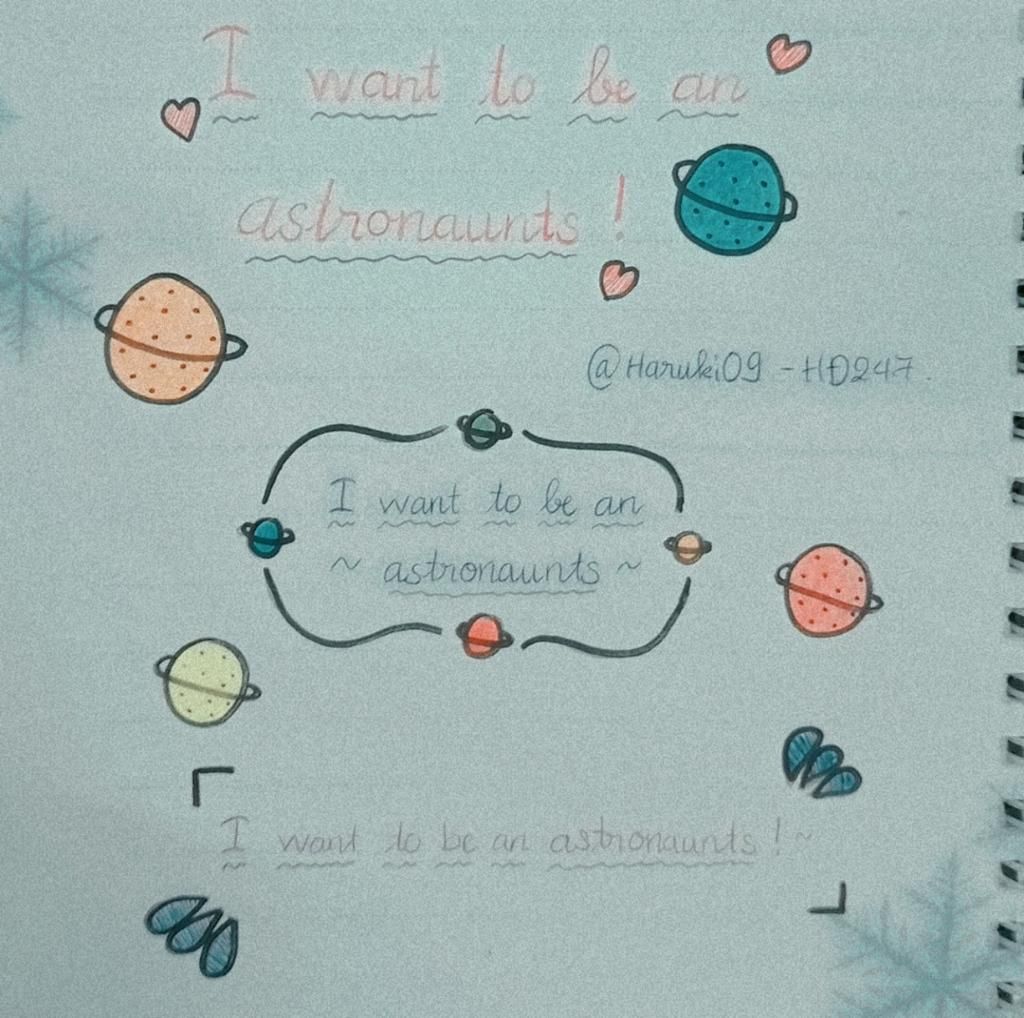 I want to be an
astronaunts !
@Haruki09 - HĐ247.
I want to be an
~ astronaunts ~
I want to be an astronaunts ! ~